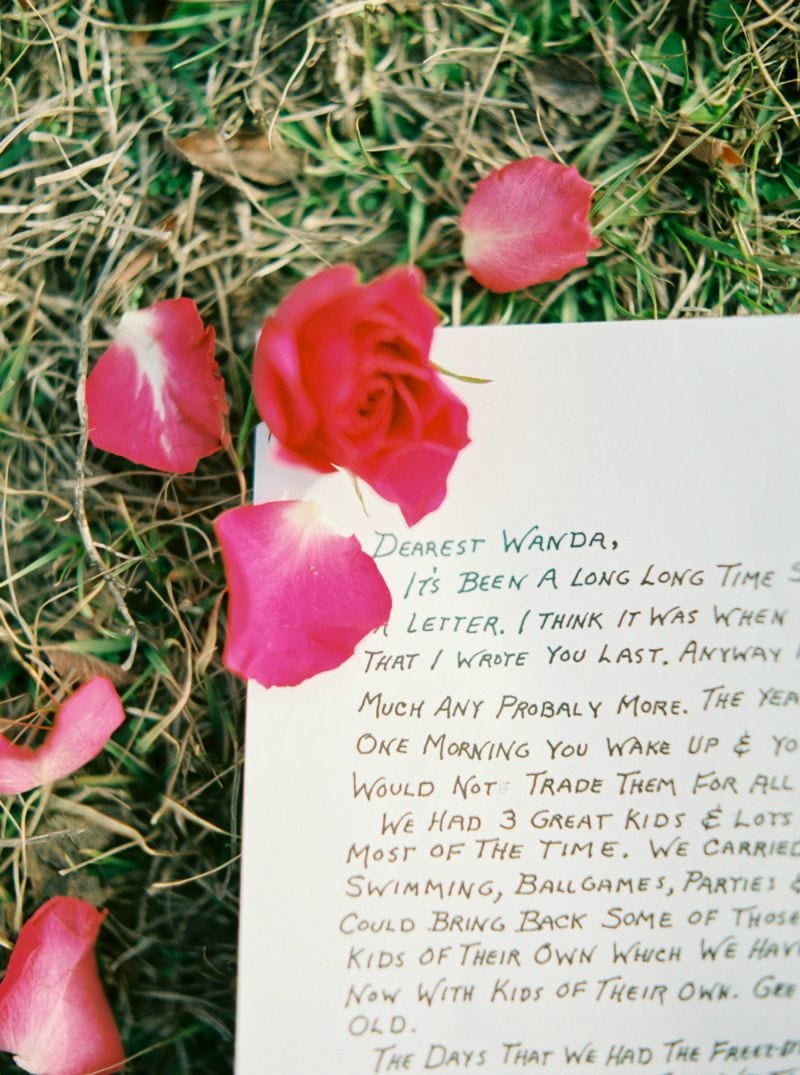 DEAREST WANDA,
IT'S BEEN A LONG LONG TIME
LETTER. I THINK IT WAS WHEN
THAT I WROTE YOU LAST. ANYWAY
MUCH ANY PROBALY MORE. THE YEA
ONE MORNING YOU WAKE UP & YO
WOULD NOT TRADE THEM FOR ALL
WE HAD 3 GREAT KIDS & LOTS
MOST OF THE TIME. WE CARRIED
SWIMMING, BALLGAMES, PARTIES &
COULD BRING BACK SOME OF THOSE
KIDS OF THEIR OWN WHICH WE HAV
NOW WITH KIDS OF THEIR OWN. GEE
OLD.
THE DAYS THAT WE HAD THE